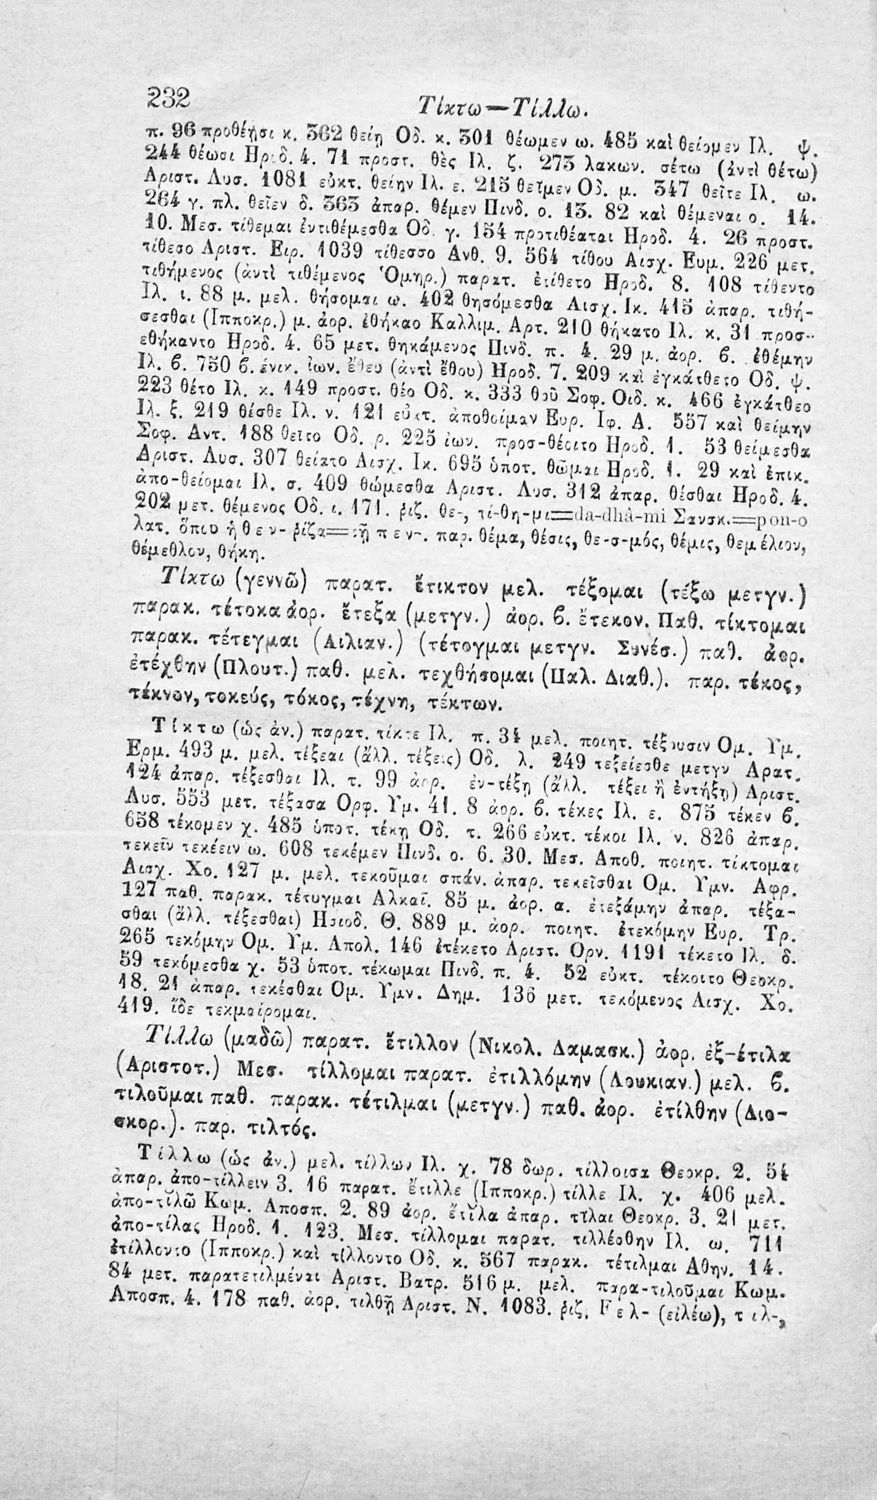 232
Τίκτω—Τίλλω.
π. 96 προθέῃσι κ. 362 θείη Οδ. κ. 301 θέωμεν ω. 485 καὶ θείομεν Ιλ. ψ.
244 θέωσι Ηροδ. 4. 71 προστ. θὲς Ιλ. ζ. 273 λακων. σέτω (ἀντὶ θέτω)
Αριστ. Λυσ. 1081 εὐκτ. θείην Ιλ. ε. 215 θεῖμεν Οδ. μ. 347 θεῖτε Ιλ. ω.
264 γ. πλ. θεῖεν δ. 363 ἀπαρ. θέμεν Πινδ. ο. 13. 82 καὶ θέμεναι ο. 14.
10. Μεσ. τίθεμαι ἐντιθέμεσθα Οδ. γ. 154 προτιθέαται Ηροδ. 4. 26 προστ.
τίθεσο Αριστ. Ειρ. 1039 τίθεσσο Ανθ. 9. 564 τίθου Αισχ. Ευμ. 226 μετ.
τιθήμενος (ἀντὶ τιθέμενος Ὁμηρ.) παρατ. ἐτίθετο Ηροδ. 8. 108 τίθεντο
Ιλ. ι. 88 μ. μελ. θήσομαι ω. 402 θησόμεσθα Αισχ. Ικ. 415 ἀπαρ. τιθή-
σεσθαι (Ιπποκρ.) μ. ἀορ. ἐθήκαο Καλλιμ. Αρτ. 210 θήκατο Ιλ. κ. 31 προσ-
εθήκαντο Ηροδ. 4. 65 μετ. θηκάμενος Πινδ. π. 4. 29 μ. ἀορ. β. ἐθέμην
Ιλ. β. 750 β. ἑνικ. ἰων. ἔθευ (ἀντὶ ἔθου) Ηροδ. 7. 209 καὶ ἐγκάτθετο Οδ. ψ.
223 θέτο Ιλ. κ. 149 προστ. θέο Οδ. κ. 333 θοῦ Σοφ. Οιδ. κ. 466 ἐγκάτθεο
Ιλ. ξ. 219 θέσθε Ιλ. ν. 121 εὐκτ. ἀποθοίμαν Ευρ. Ιφ. Α. 557 καὶ θείμην
Σοφ. Αντ. 188 θεῖτο Οδ. ρ. 225 ἰων. προσ-θέοιτο Ηροδ. 1. 53 θείμεσθα
Αριστ. Λυσ. 307 θείατο Αισχ. Ικ. 695 ὑποτ. θῶμαι Ηροδ. 1. 29 καὶ ἐπικ.
ἀπο-θείομαι Ιλ. σ. 409 θώμεσθα Αριστ. Λυσ. 312 ἀπαρ. θέσθαι Ηροδ. 4.
202 μετ. θέμενος Οδ. ι. 171. ῥιζ. θε-, τί-θη-μι=da-dhâ-mi Σανσκ.=pon-o
λατ. ὅπου ἡ θ ε ν- ῥίζα=τῇ π ε ν-. παρ. θέμα, θέσις, θε-σ-μός, θέμις, θεμέλιον,
θέμεθλον, θήκη.
Τίκτω (γεννῶ) παρατ. ἔτικτον μελ. τέξομαι (τέξω μετγν.)
παρακ. τέτοκα ἀορ. ἔτεξα (μετγν.) ἀορ. β. ἔτεκον. Παθ. τίκτομαι
παρακ. τέτεγμαι (Αιλιαν.) (τέτογμαι μετγν. Συνέσ.) παθ. ἀορ.
ἐτέχθην (Πλουτ.) παθ. μελ. τεχθήσομαι (Παλ. Διαθ.). παρ. τέκος,
τέκνον, τοκεύς, τόκος, τέχνη, τέκτων.
Τίκτω (ὡς ἀν.) παρατ. τίκτε Ιλ. π. 34 μελ. ποιητ. τέξουσιν Ομ. Υμ.
Ερμ. 493 μ. μελ. τέξεαι (ἄλλ. τέξεις) Οδ. λ. 249 τεξείεσθε μετγν Αρατ.
124 ἀπαρ. τέξεσθαι Ιλ. τ. 99 ἀορ. ἐν-τέξῃ (ἄλλ. τέξει ἢ ἐντήξῃ) Αριστ.
Λυσ. 553 μετ. τέξασα Ορφ. Υμ. 41. 8 ἀορ. β. τέκες Ιλ. ε. 875 τέκεν β.
658 τέκομεν χ. 485 ὑποτ. τέκῃ Οδ. τ. 266 εὐκτ. τέκοι Ιλ. ν. 826 ἀπαρ.
τεκεῖν τεκέειν ω. 608 τεκέμεν Πινδ. ο. 6. 30. Μεσ. Αποθ. ποιητ. τίκτομαι
Αισχ. Χο. 127 μ. μελ. τεκοῦμαι σπάν. ἀπαρ. τεκεῖσθαι Ομ. Υμν. Αφρ.
127 παθ. παρακ. τέτυγμαι Αλκαῖ. 85 μ. ἀορ. α. ἐτεξάμην ἀπαρ. τέξα-
σθαι (ἄλλ. τέξεσθαι) Ησιοδ. Θ. 889 μ. ἀορ. ποιητ. ἐτεκόμην Ευρ. Τρ.
265 τεκόμην Ομ. Υμ. Απολ. 146 ἐτέκετο Αριστ. Ορν. 1191 τέκετο Ιλ. δ.
59 τεκόμεσθα χ. 53 ὑποτ. τέκωμαι Πινδ. π. 4. 52 εὐκτ. τέκοιτο Θεοκρ.
18. 21 ἀπαρ. τεκέσθαι Ομ. Υμν. Δημ. 136 μετ. τεκόμενος Αισχ. Χο.
419. ἴδε τεκμαίρομαι.
Τίλλω (μαδῶ) παρατ. ἔτιλλον (Νικολ. Δαμασκ.) ἀορ. ἐξ-έτιλα
(Αριστοτ.) Μεσ. τίλλομαι παρατ. ἐτιλλόμην (Λουκιαν.) μελ. β.
τιλοῦμαι παθ. παρακ. τέτιλμαι (μετγν.) παθ. ἀορ. ἐτίλθην (Διο-
σκορ.). παρ. τιλτός.
Τίλλω (ὡς ἀν.) μελ. τίλλων Ιλ. χ. 78 δωρ. τίλλοισα Θεοκρ. 2. 54
ἀπαρ. ἀπο-τίλλειν 3. 16 παρατ. ἔτιλλε (Ιπποκρ.) τίλλε Ιλ. χ. 406 μελ.
ἀπο-τιλῶ Κωμ. Αποσπ. 2. 89 ἀορ. ἔτιλα ἀπαρ. τῖλαι Θεοκρ. 3. 21 μετ.
ἀπο-τίλας Ηροδ. 1. 123. Μεσ. τίλλομαι παρατ. τιλλέσθην Ιλ. ω. 711
ἐτίλλοντο (Ιπποκρ.) καὶ τίλλοντο Οδ. κ. 567 παρακ. τέτιλμαι Αθην. 14.
84 μετ. παρατετιλμέναι Αριστ. Βατρ. 516 μ. μελ. παρα-τιλοῦμαι Κωμ.
Αποσπ. 4. 178 παθ. ἀορ. τιλθῇ Αριστ. Ν. 1083. ῥιζ. F ε λ- (εἰλέω), τ ι λ-,